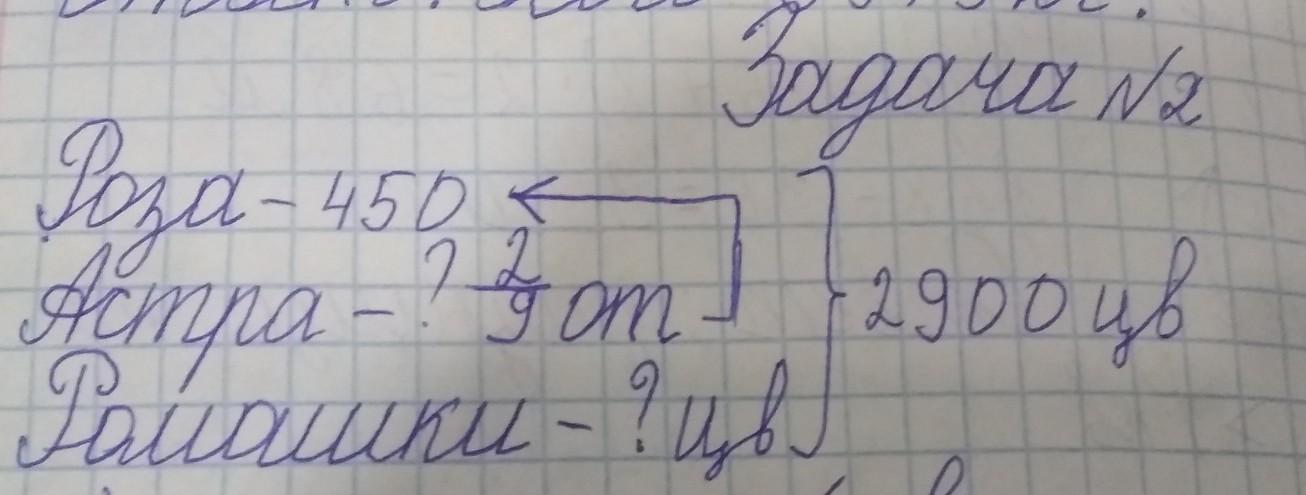 Задача №2
Роза - 450
Астра - ? 2/9 от
Ромашки - ? цв
2900 цв